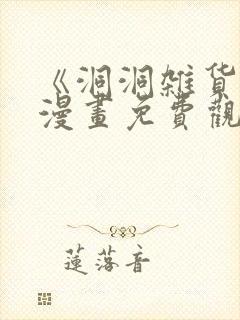 《洞洞雜貨
漫畫免費觀
蓮落音